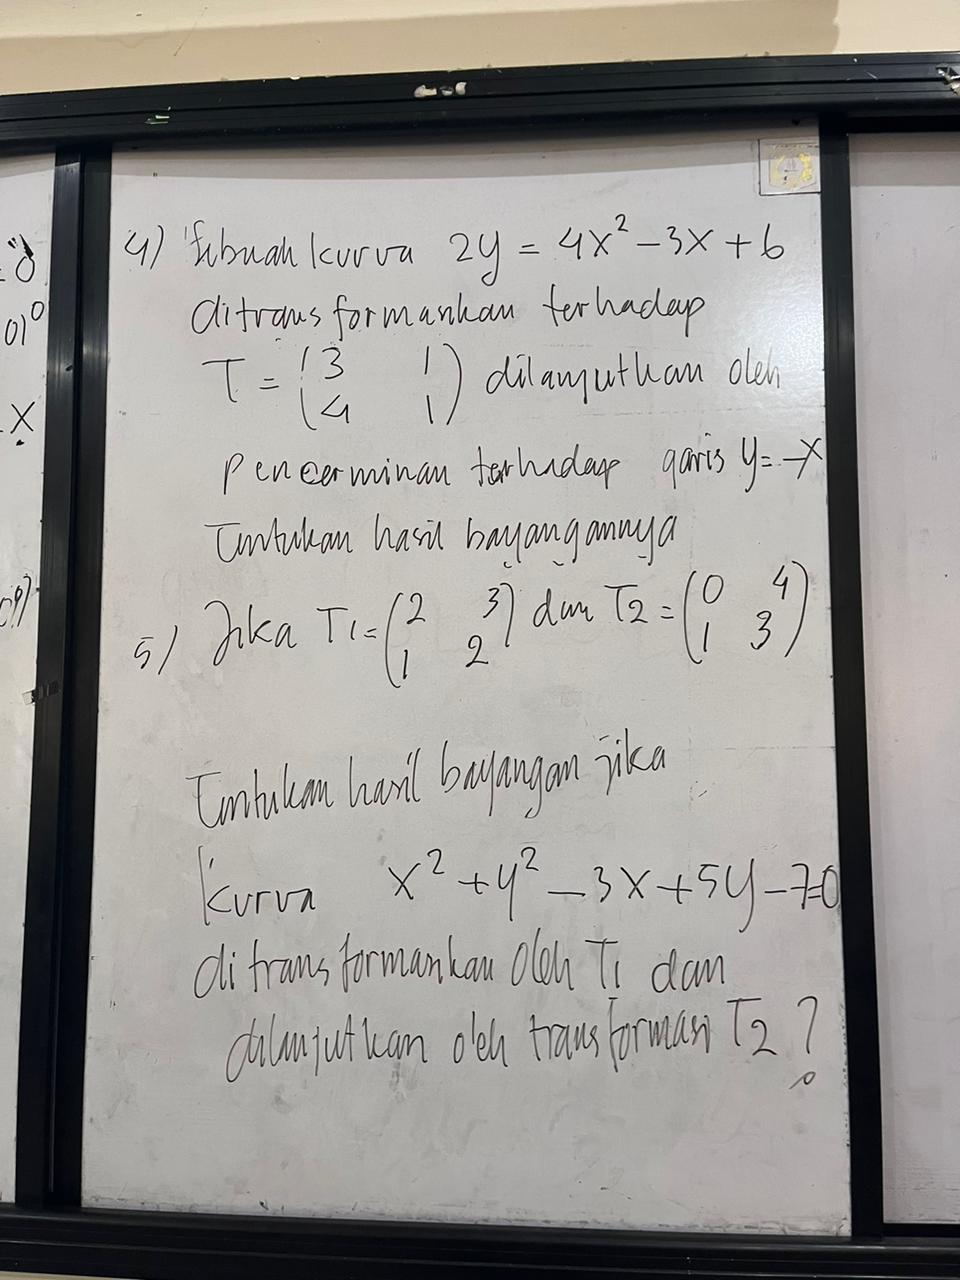 - 0
0)⁰
X
4) Sebuah kurva 2y = 4x² - 3x + 6
ditransformasikan terhadap
T = (3 1
4 1) dilanjutkan oleh
pencerminan terhadap garis y = -x
Tentukan hasil bayangannya
5) Jika T1 = (2 3
1 2) dan T2 = (0 4
1 3)
Tentukan hasil bayangan jika
kurva x² + y² - 3x + 5y - 7 = 0
ditransformasikan oleh T1 dan
dilanjutkan oleh transformasi T2 ?